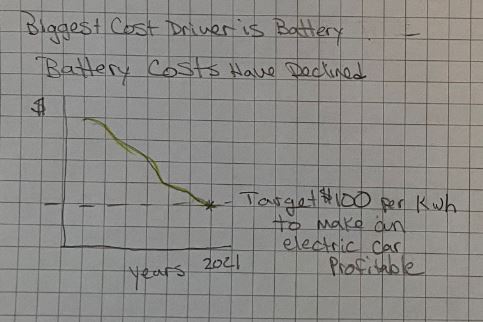 Biggest Cost Driver is Battery
Battery Costs Have Declined
$
Target $100 per Kwh
to make an
electric car
Profitable
years 2021